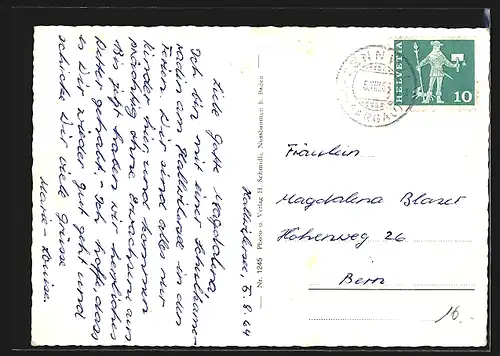 Hallwilersee, 5.8.64
Liebe Gotte Magdalena,
Ich bin mit einer Schulkame-
radin am Hallwilersee in den
Ferien. Wir sind alles nur
Kinder hier und kommen
prächtig ohne Erwachsene aus
Bis jetzt haben wir herrliches
Wetter gehabt. Ich hoffe, dass
es Dir wieder gut geht und
schicke Dir viele Grüsse
Marie-Louise.
Nr. 1245 Photo u. Verlag H. Schmidli, Nussbaumen b. Baden
HELVETIA
10
Fräulein
Magdalena Blaser
Höhenweg 26
Bern
10.